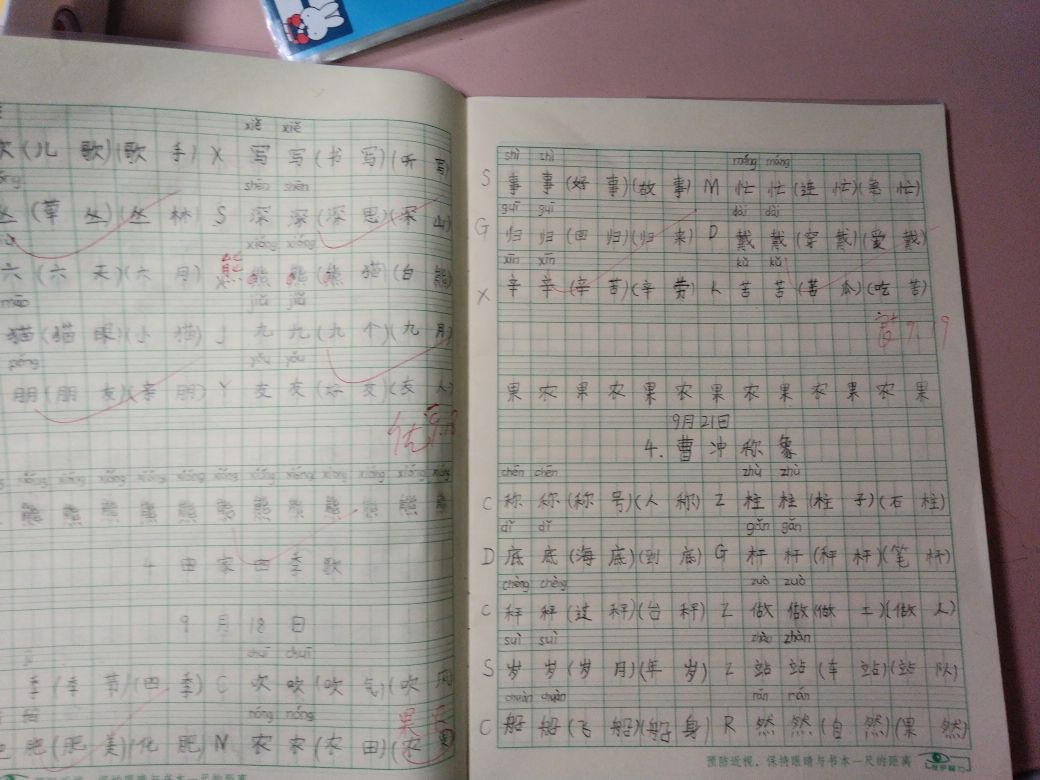 xiě xiě
(儿歌)(歌手) X 写写(书写)(听写)
shēn shēn
丛(草丛)(丛林) S 深深(深思)(深山)
xióng xióng
六(六天)(六月) X 熊熊(熊猫)(白熊)
熊
māo jiǔ jiǔ
猫(猫眼)(小猫) J 九九(九个)(九月)
péng yǒu yǒu
朋(朋友)(亲朋) Y 友友(好友)(友人)
优 9.18
xióng xióng xióng xióng xióng xióng xióng xióng xióng xióng xióng xióng
熊熊熊熊熊熊熊熊熊熊熊
4 田家四季歌
9月18日
jì chuī chuī
季(季节)(四季) C 吹吹(吹气)(吹风)
nóng nóng
肥(肥美)(化肥) N 农农(农田)
果
预防近视，保持眼睛与书本一尺的距离
shì shì máng máng
S 事事(好事)(故事) M 忙忙(连忙)(急忙)
guī guī dài dài
G 归归(回归)(归来) D 戴戴(穿戴)(爱戴)
xīn xīn kǔ kǔ
X 辛辛(辛苦)(辛劳) K 苦苦(苦瓜)(吃苦)
9.19
果农果农果农果农果农果农果
9月21日
4. 曹冲称象
chēn chēn zhù zhù
C 称称(称号)(人称) Z 柱柱(柱子)(石柱)
dǐ dǐ gǎn gǎn
D 底底(海底)(到底) G 杆杆(秤杆)(笔杆)
chèng chèng zuò zuò
C 秤秤(过秤)(台秤) Z 做做(做工)(做人)
suì suì zhàn zhàn
S 岁岁(岁月)(年岁) Z 站站(车站)(站队)
chuán chuán rán rán
C 船船(飞船)(船身) R 然然(自然)(果然)
预防近视，保持眼睛与书本一尺的距离